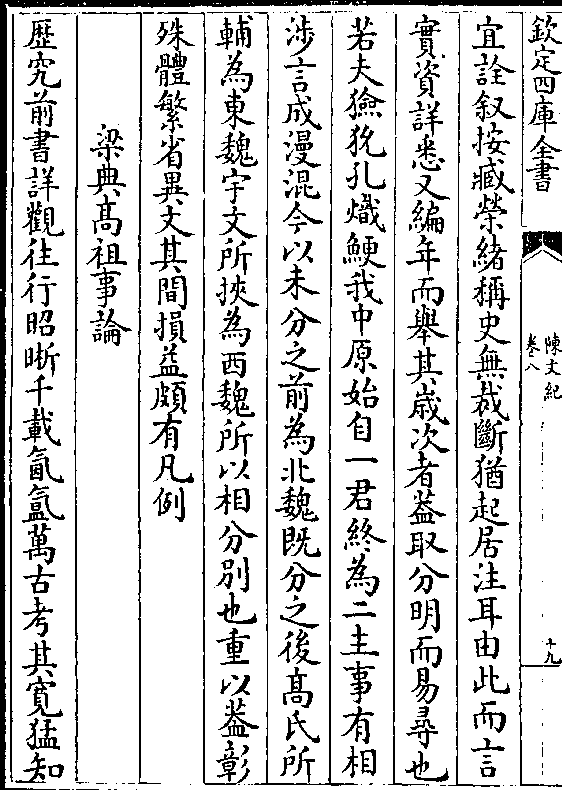 欽定四庫全書
陳文紀
卷八
十九
宜詮叙按臧榮緒稱史無裁斷猶起居注耳由此而言
實資詳悉又編年而舉其歳次者葢取分明而易尋也
若夫獫狁孔熾鯁我中原始自一君終為二主事有相
涉言成漫混今以未分之前為北魏既分之後髙氏所
輔為東魏宇文所挾為西魏所以相分別也重以葢彰
殊體繁省異文其間損益頗有凡例
梁典髙祖事論
歴究前書詳觀往行昭晰千載氤氲萬古考其寛猛知